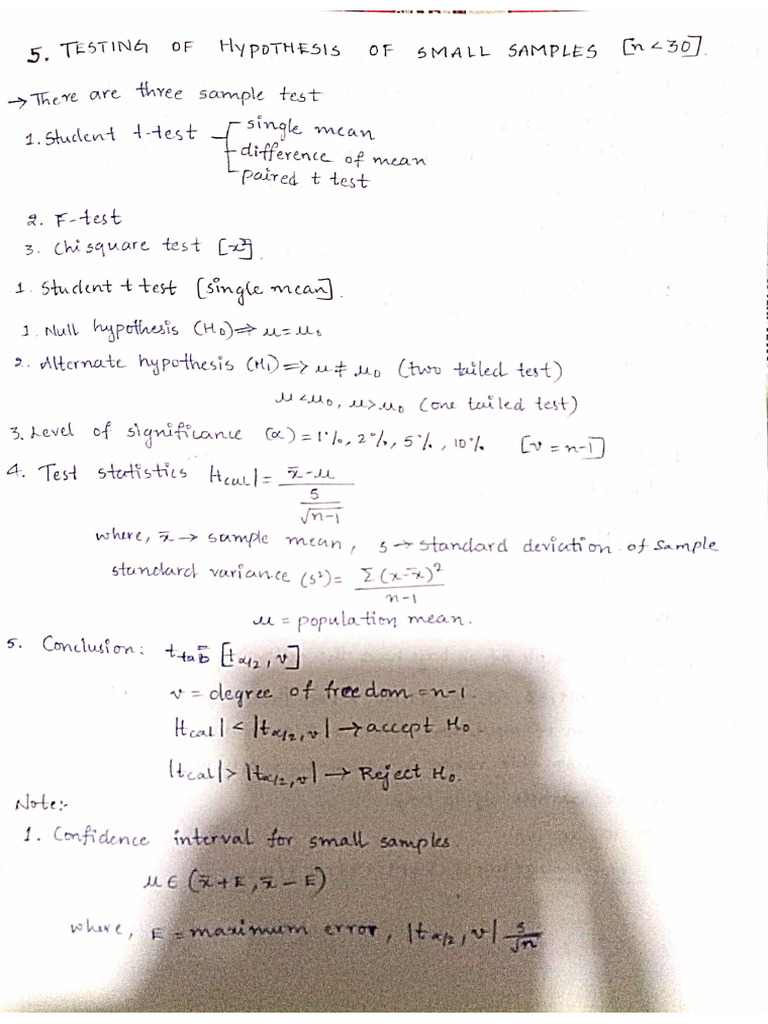 5. TESTING OF HYPOTHESIS OF SMALL SAMPLES [n < 30].
→ There are three sample test
1. Student t-test single mean
difference of mean
paired t test
2. F-test
3. Chisquare test [x²].
1. Student t test [single mean].
1. Null hypothesis (H₀) ⇒ μ = μ₀
2. Alternate hypothesis (H₁) => μ ≠ μ₀ (two tailed test)
μ < μ₀, μ > μ₀ (one tailed test)
3. Level of significance (α) = 1%, 2%, 5%, 10% [v = n-1]
4. Test statistics |tcal| = (x̄ - μ) / (s / √n-1)
where, x̄ → sample mean, s → standard deviation of sample
standard variance (s²) = Σ(x-x̄)² / n-1
μ = population mean.
5. Conclusion: t tab [tα/2, v]
v = degree of freedom = n-1.
|tcal| < |tα/2, v| → accept H₀
|tcal| > |tα/2, v| → Reject H₀.
Note:-
1. Confidence interval for small samples.
μ ∈ (x̄ + E, x̄ - E)
where, E = maximum error, |tα/2, v| s/√n